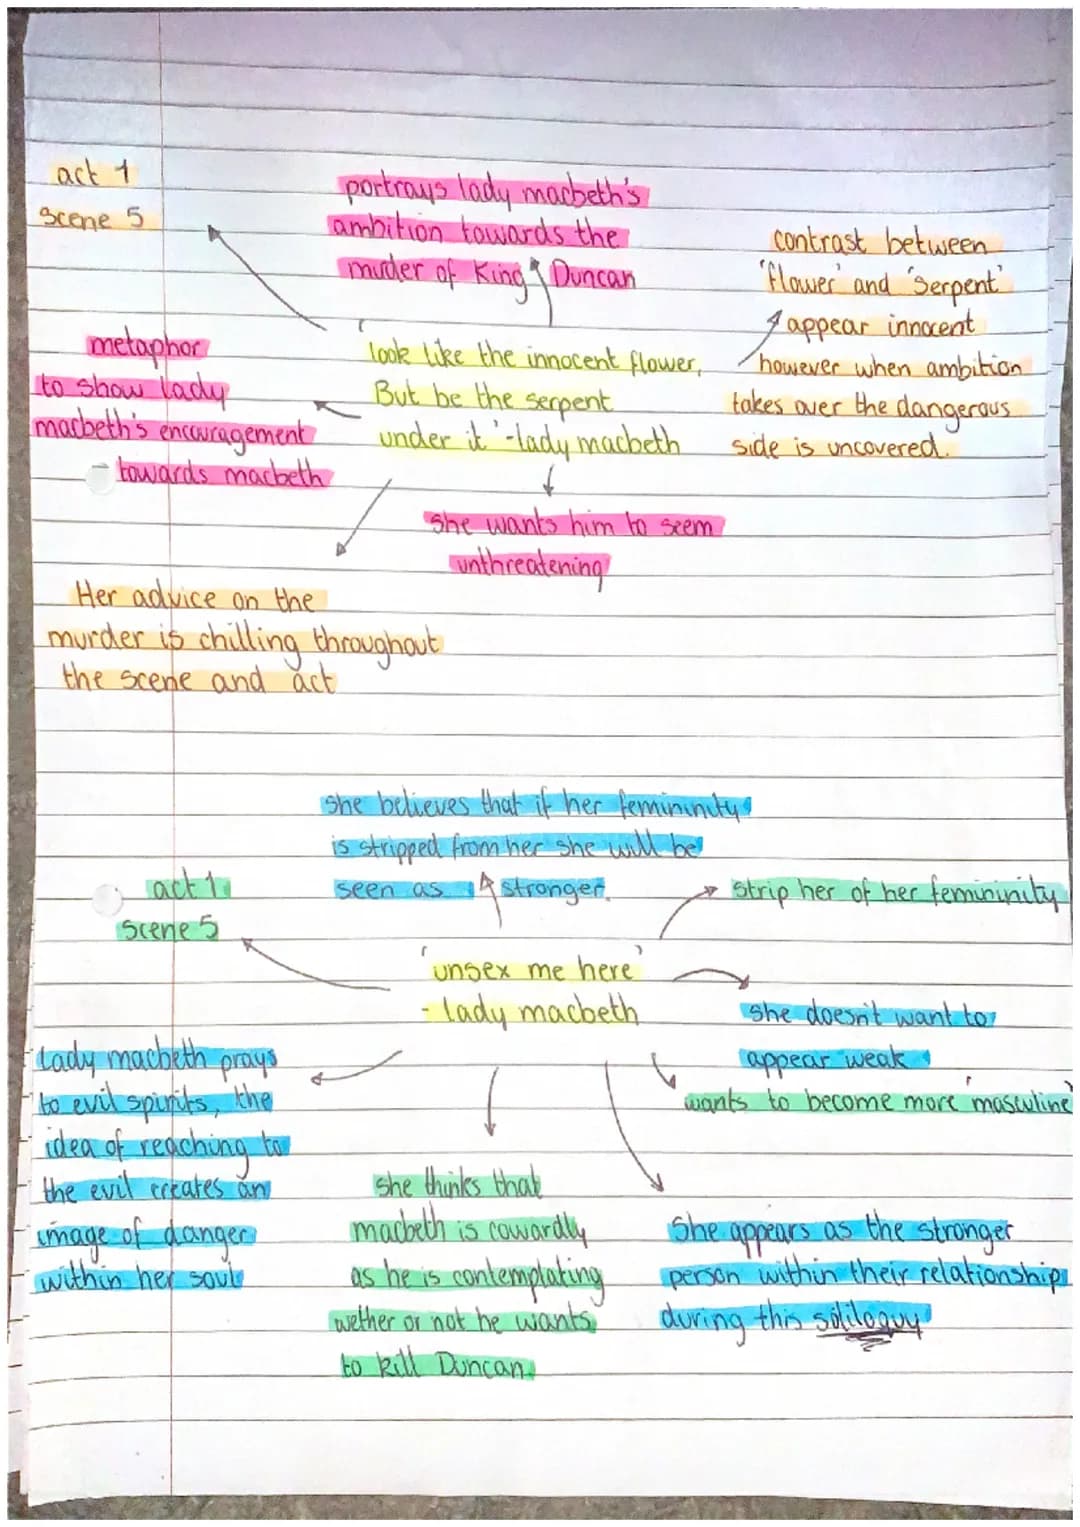 act 1
scene 5
portrays lady macbeth's
ambition towards the
murder of King Duncan
contrast between
'flower' and 'serpent'
appear innocent
however when ambition
takes over the dangerous
side is uncovered.
metaphor
to show lady
macbeth's encouragement
towards macbeth
'look like the innocent flower,
But be the serpent
under it' - lady macbeth
she wants him to seem
unthreatening
Her advice on the
murder is chilling throughout
the scene and act
she believes that if her femininity
is stripped from her she will be
seen as stronger.
act 1
scene 5
strip her of her femininity
'unsex me here'
- lady macbeth
she doesn't want to
appear weak
wants to become more 'masculine'
Lady macbeth prays
to evil spirits, the
idea of reaching to
the evil creates an
image of danger
within her soul
she thinks that
macbeth is cowardly
as he is contemplating
wether or not he wants
to kill Duncan.
She appears as the stronger
person within their relationship
during this soliloquy